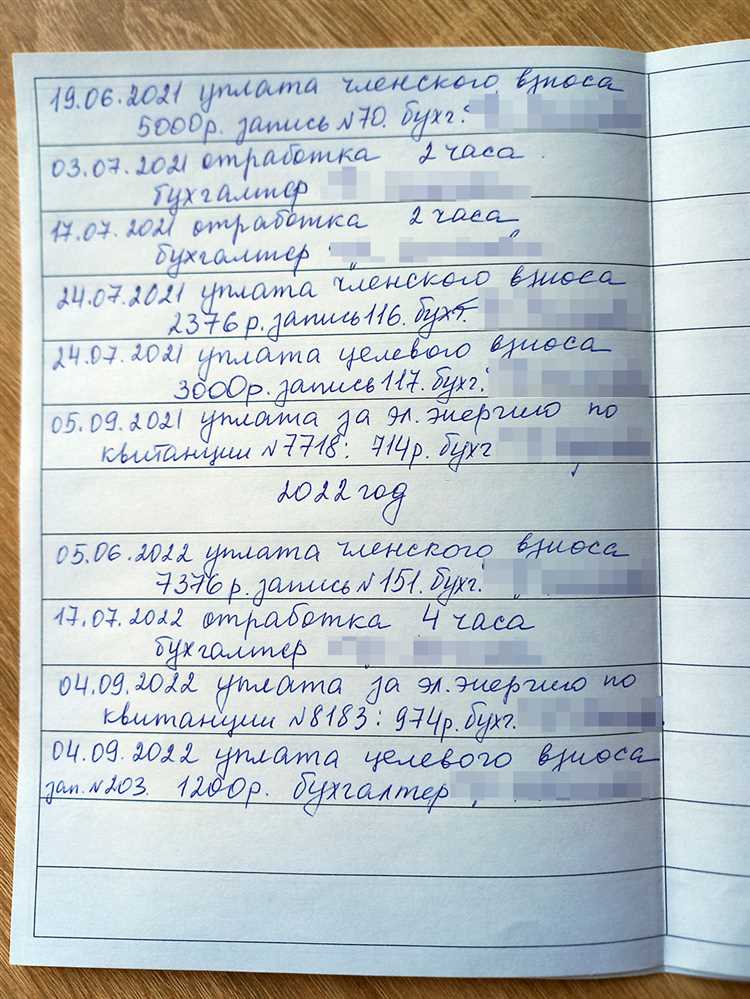 19.06.2021 уплата членского взноса
5000р. запись №70. бухг.
03.07.2021 отработка 2 часа
бухгалтер
17.07.2021 отработка 2 часа
бухгалтер
24.07.2021 уплата членского взноса
2376 р. запись 116. бухг.
24.07.2021 уплата целевого взноса
3000р. запись 117. бухг.
05.09.2021 уплата за эл. энергию по
квитанции №7718: 714р. бухг
2022 год
05.06.2022 уплата членского взноса
7376 р. запись №151. бухг.
17.07.2022 отработка 4 часа
бухгалтер
04.09.2022 уплата за эл. энергию по
квитанции №8183: 974р. бухг.
04.09.2022 уплата целевого взноса
зап. №203. 1200р. бухгалтер